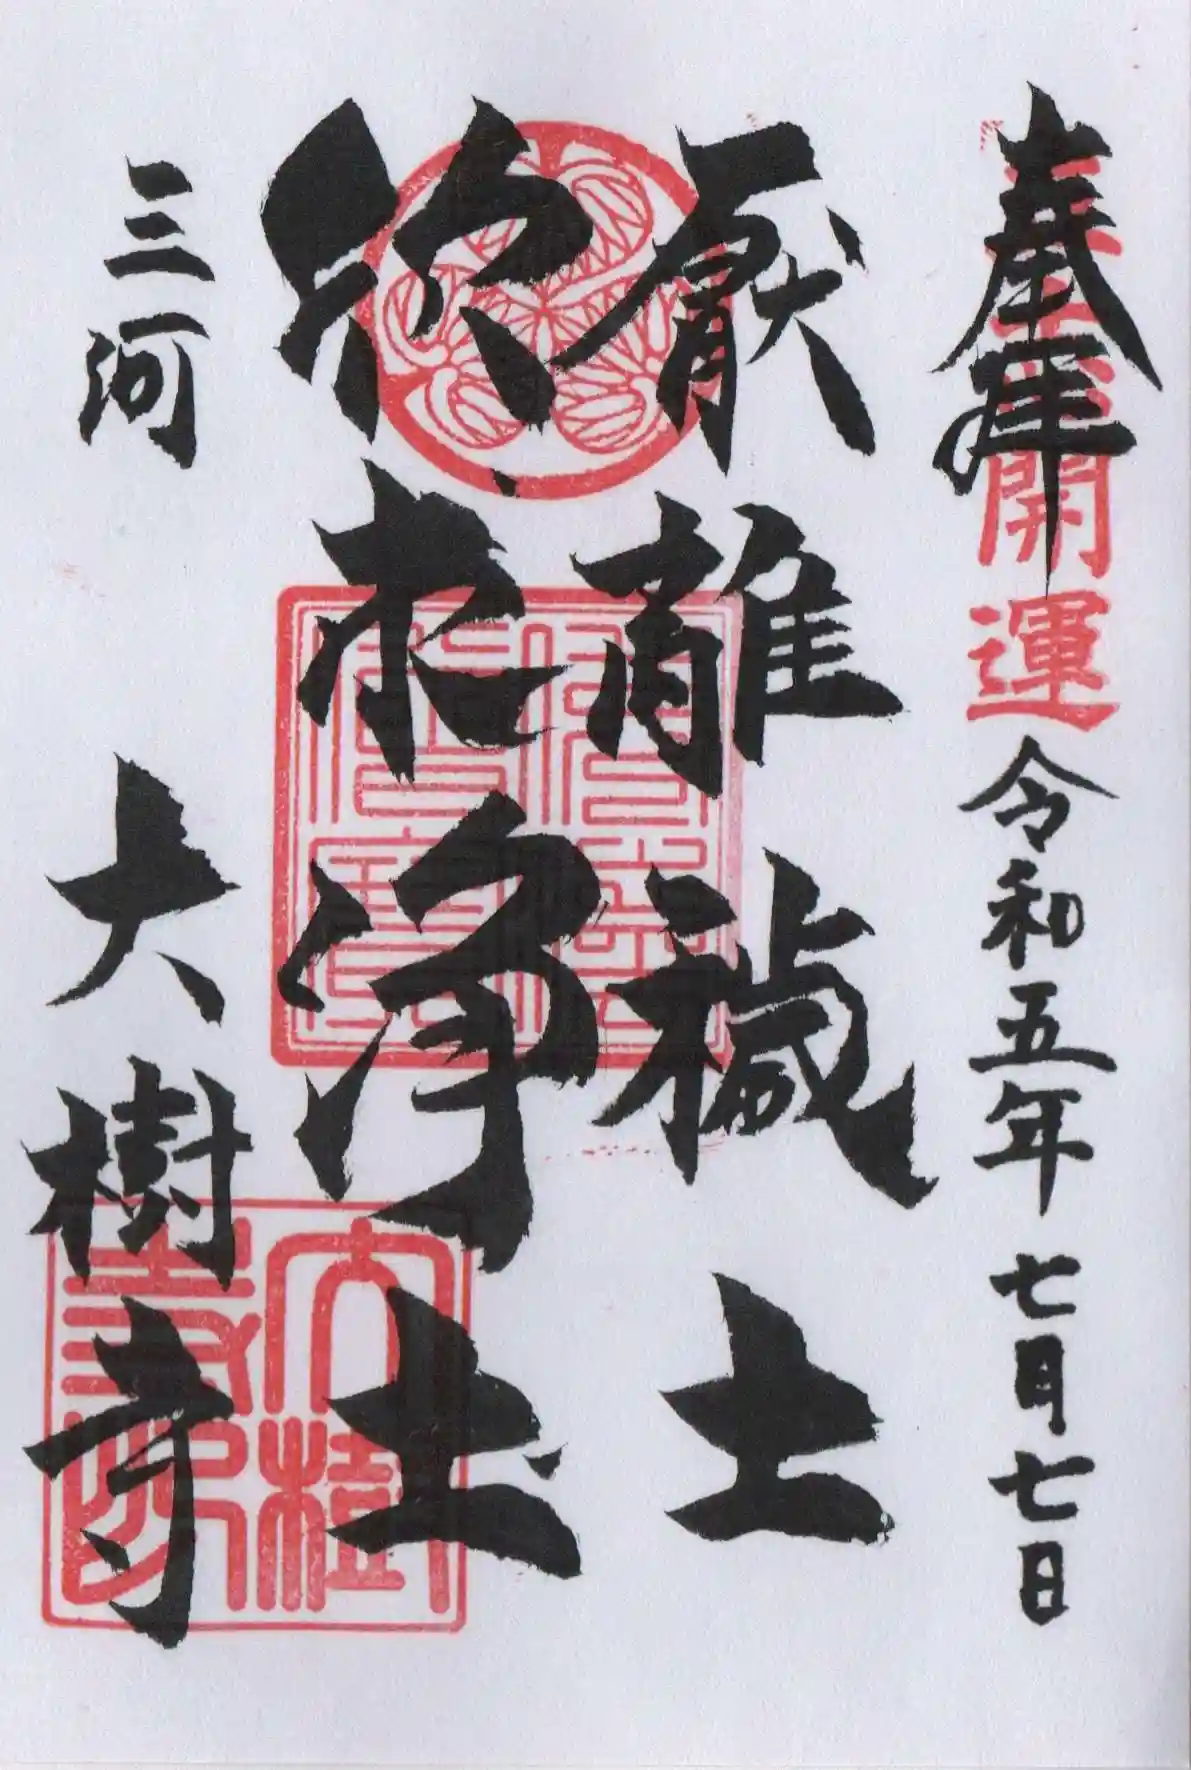 奉拝
開運
令和五年七月七日
厭離穢土
欣求浄土
三河
大樹寺